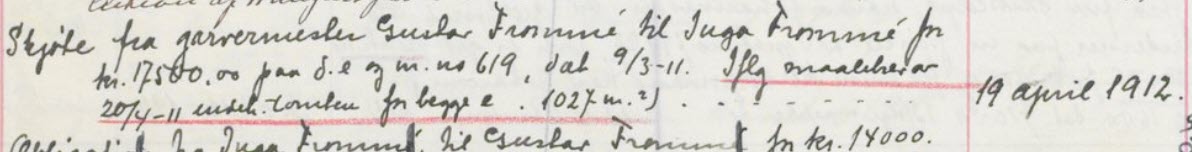 Skjøte fra garvermester Gustav Frommé til Inga Frommé for
kr. 17500.00 paa d.e og m. no 619, dat 9/3-11. Iflg maalebrev av
20/4-11 tomten for begge e. (1027 m.²)
19 april 1912.
Obligation fra Inga Frommé til Gustav Frommé for kr. 14000.